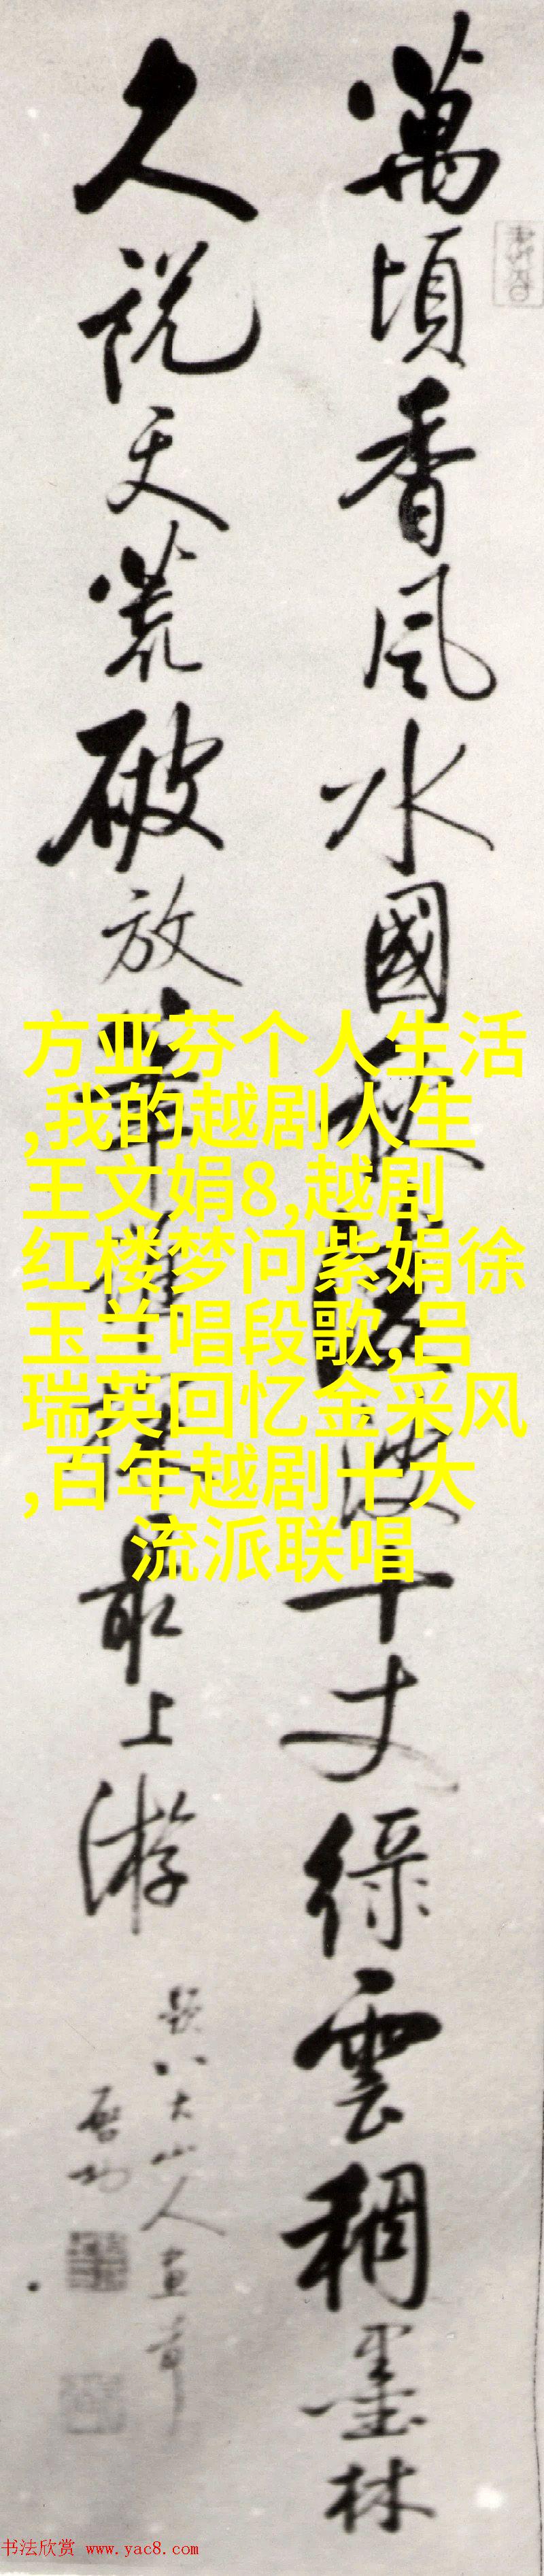 萬頃香風水國秋波十丈綠雲稠墨林
久說天荒破放筆最上游
題八大山人畫
啟功
方亚芬个人生活
,我的越剧人生
王文娟8,越剧
红楼梦问紫娟徐
玉兰唱段歌,吕
瑞英回忆金采风
,百年越剧十大
流派联唱
书法欣赏 www.yac8.com